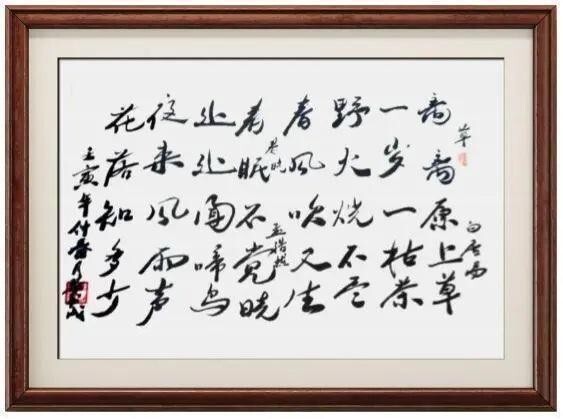 草 白居易
离离原上草
一岁一枯荣
野火烧不尽
春风吹又生
春晓 孟浩然
春眠不觉晓
处处闻啼鸟
夜来风雨声
花落知多少
壬寅年付